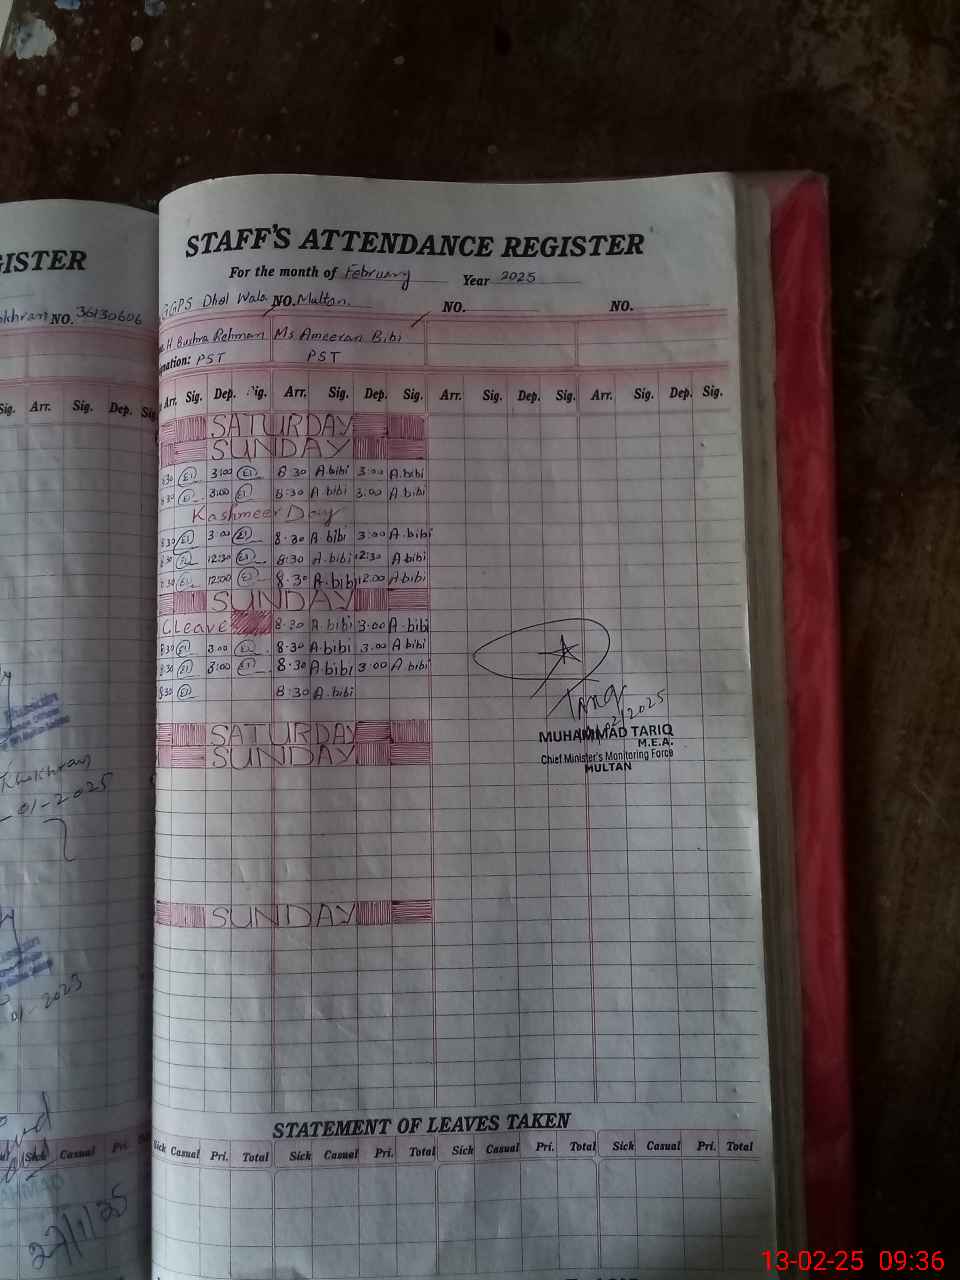 GISTER
NO. 36130606
Sig. Arr. Sig. Dep. Sig.
01-2025
Sick Casual Pri.
22/1/25
STAFF'S ATTENDANCE REGISTER
For the month of February Year 2025
GGPS Dhol Wala NO. Multan. NO. NO.
H. Bushra Rehman Ms Ameeran Bibi
nation: PST PST
Arr. Sig. Dep. Sig. Arr. Sig. Dep. Sig. Arr. Sig. Dep. Sig. Arr. Sig. Dep. Sig.
SATURDAY
SUNDAY
8:30 3:00 8 30 A.bibi 3:00 A.bibi
8:30 3:00 8:30 A bibi 3:00 A.bibi
Kashmeer Day
8:30 3:00 8.30 A.bibi 3:00 A.bibi
8:30 12:30 8:30 A.bibi 12:30 A bibi
8:30 12:00 8.30 A.bibi 12:00 A.bibi
SUNDAY
C Leave 8.30 A bibi 3.00 A.bibi
8:30 3:00 8.30 A.bibi 3.00 A bibi
8:30 3:00 8.30 A bibi 3:00 A bibi
8:30 8:30 A.bibi
SATURDAY
SUNDAY
Tariq
02/2025
MUHAMMAD TARIQ
M.E.A.
Chief Minister's Monitoring Force
MULTAN
SUNDAY
STATEMENT OF LEAVES TAKEN
Sick Casual Pri. Total Sick Casual Pri. Total Sick Casual Pri. Total Sick Casual Pri. Total
13-02-25 09:36